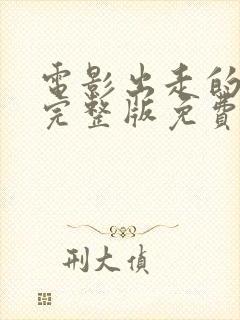 電影出走的
完整版免費
刑大偵